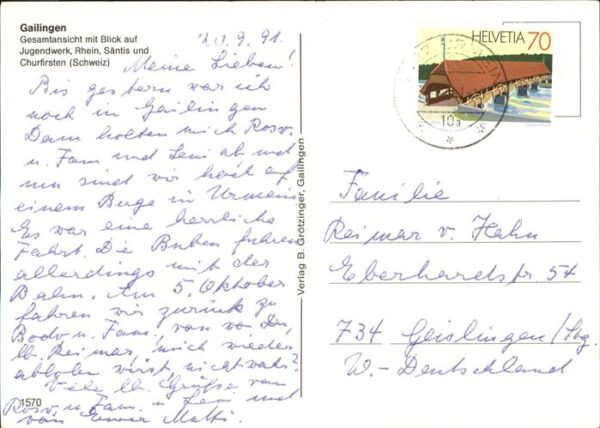 Gailingen
Gesamtansicht mit Blick auf
Jugendwerk, Rhein, Säntis und
Churfirsten (Schweiz)
HELVETIA 70
10.9.91.
Meine Lieben!
Bis gestern war ich
noch in Gailingen
Dann holten mich Rosv.
u. Fam und Leni ab und
nun sind wir hoch auf
einem Berge in Urmein
Es war eine herrliche
Fahrt. Die Buben fuhren
allerdings mit der
Bahn. Am 5. Oktober
fahren wir zurück zu
Bodo u. Fam, von wo Du,
lb. Reimar, mich wieder
abholen wirst, nicht wahr?
Viele lb. Grüße von
Rosv. u. Fam. u. Leni und
von Eurer Mutti.
1570
Verlag B. Grötzinger, Gailingen
Familie
Reimar v. Hahn
Eberhardstr. 54
734 Geislingen/Stg.
W.-Deutschland